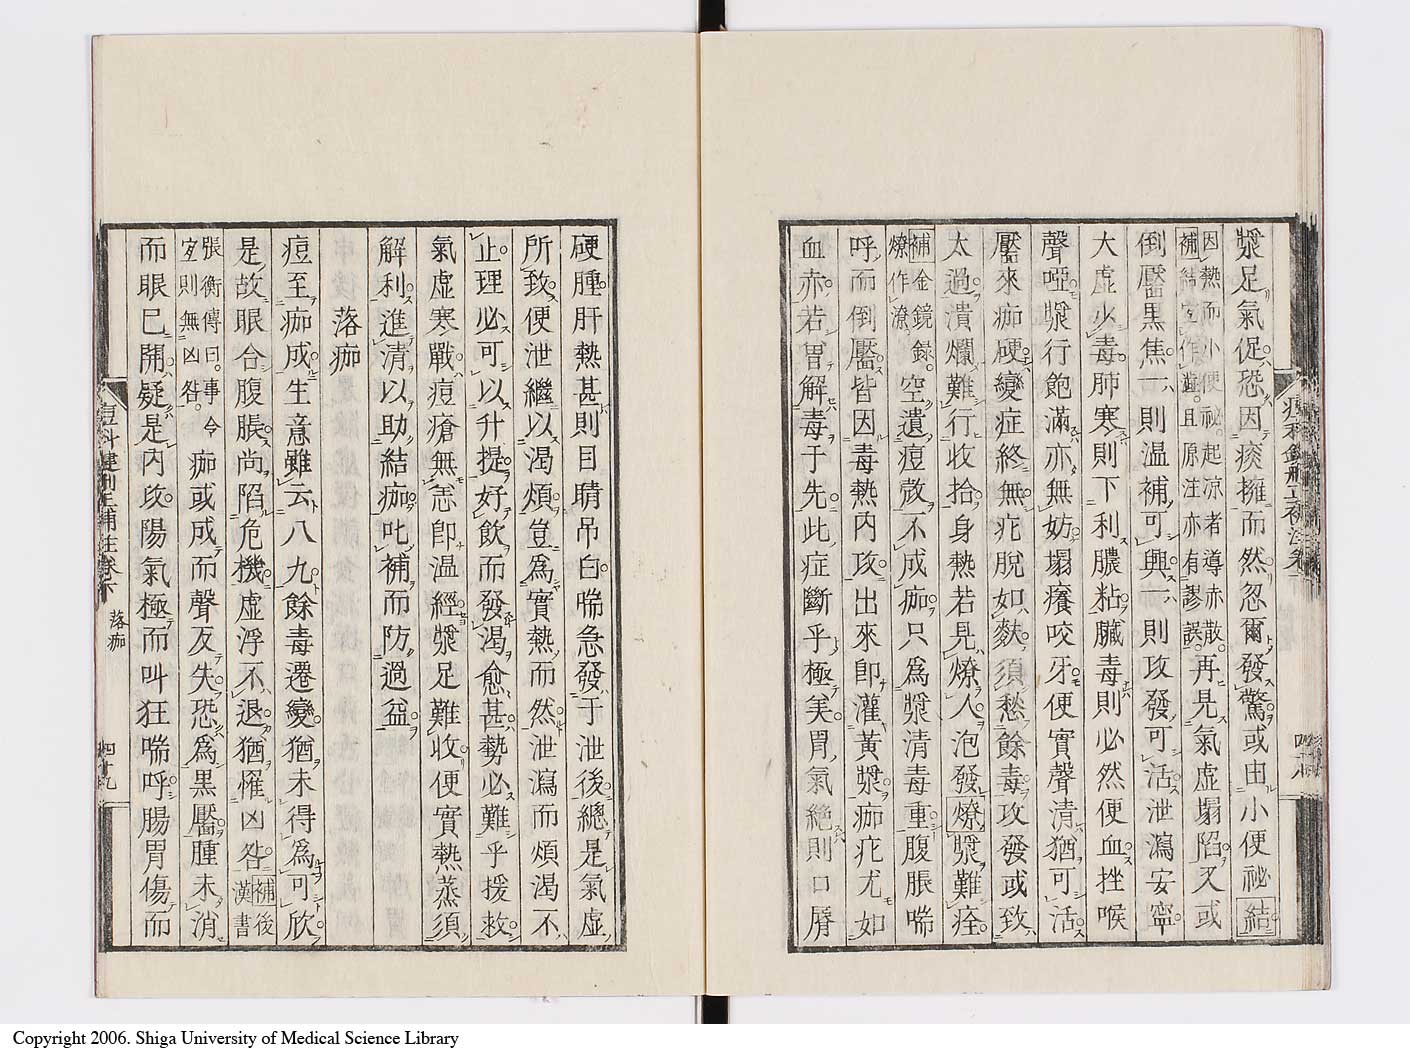 漿足氣促恐因痰擁而然忽爾發驚或由小便祕結
補因熱而小便祕起涼者導赤散
結室作齒且原注亦有謬誤再見氣虛塌陷又或
倒靨黑焦一則溫補可興一則攻發可活泄瀉安寧
大虛少毒肺寒則下利膿粘臟毒則必然便血挫喉
聲啞漿行飽滿亦無妨塌癢咬牙便實聲清猶可活
靨來痂硬變症終無疕脫如麩須愁餘毒攻發或致
太過潰爛難行收拾身熱若見燎人泡發燎漿難痊
補金鏡錄
燎作潦空遺痘殼不成痂只為漿清毒重腹脹喘
呼而倒靨皆因毒熱內攻出來即灌黃漿痂疕尤如
血赤若胃解毒于先此症斷乎極美胃氣絕則口唇
痘科鍵刪正補注卷
四十八
硬腫肝熱甚則目睛吊白喘急發于泄後總是氣虛
所致便泄繼以渴煩豈為實熱而然泄瀉而煩渴不
止理必可以升提好飲而發渴愈甚勢必難乎援救
氣虛寒戰痘瘡無恙即溫經漿足難收便實熱蒸須
解利進清以助結痂叱補而防過益
落痂
痘至痂成生意雖云八九餘毒遷變猶未得為可欣
是故眼合腹脹尚陷危機虛浮不退猶罹凶咎補後漢書
張衡傳曰事令
室則無凶咎痂或成而聲反失恐為黑靨腫未消
而眼已開疑是內攻陽氣極而叫狂喘呼腸胃傷而
痘科鍵刪正補註卷 落痂
四十九
Copyright 2006. Shiga University of Medical Science Library